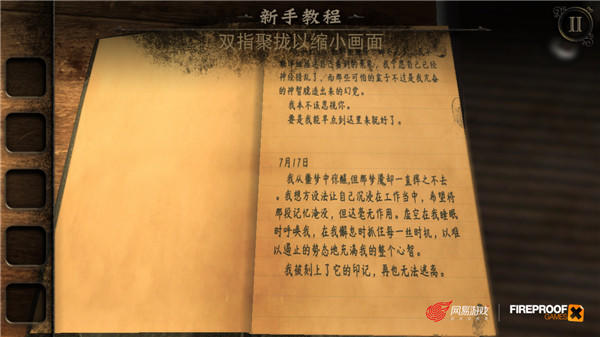 新手教程
双指聚拢以缩小画面
II
神经错乱了,而那些可怕的盒子不过是我亢奋
的神智臆造出来的幻觉。
我本不该忽视你。
要是我能早点到这里来就好了。
7月17日
我从噩梦中惊醒,但那梦魇却一直挥之不去
。我想方设法让自己沉浸在工作当中,希望将
那段记忆淹没,但这毫无作用。虚空在我睡眠
时呼唤我,在我懈怠时抓住每一丝时机,以难
以遏止的势态地充满我的整个心智。
我被刻上了它的印记,再也无法逃离。
网易游戏
FIREPROOF
GAMES